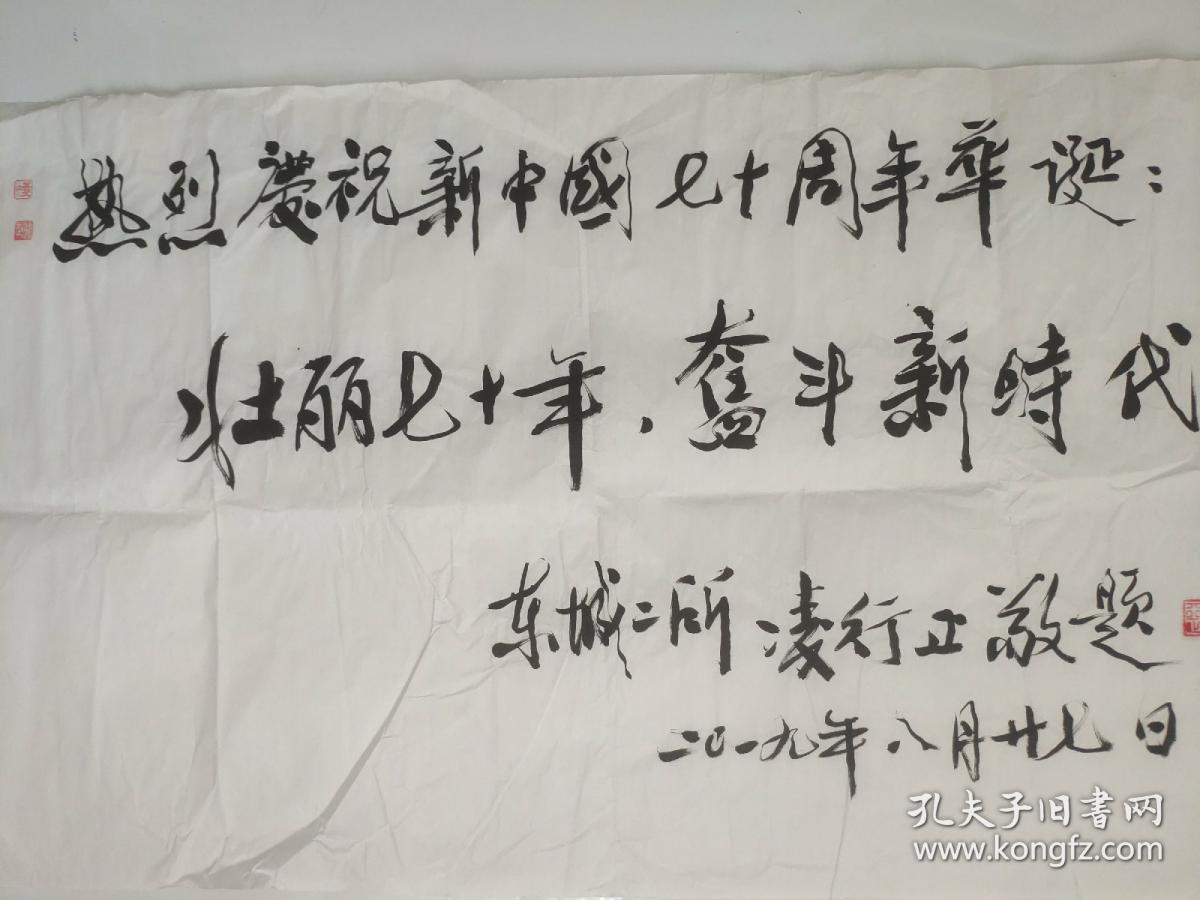 热烈慶祝新中國七十周年华诞：
壮丽七十年，奮斗新時代
东城二所 凌行正敬题
二〇一九年八月廿七日
孔夫子旧書网
www.kongfz.com